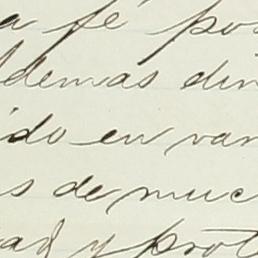 a fé pos
demas din
ido en var
s de muc
ad y prot